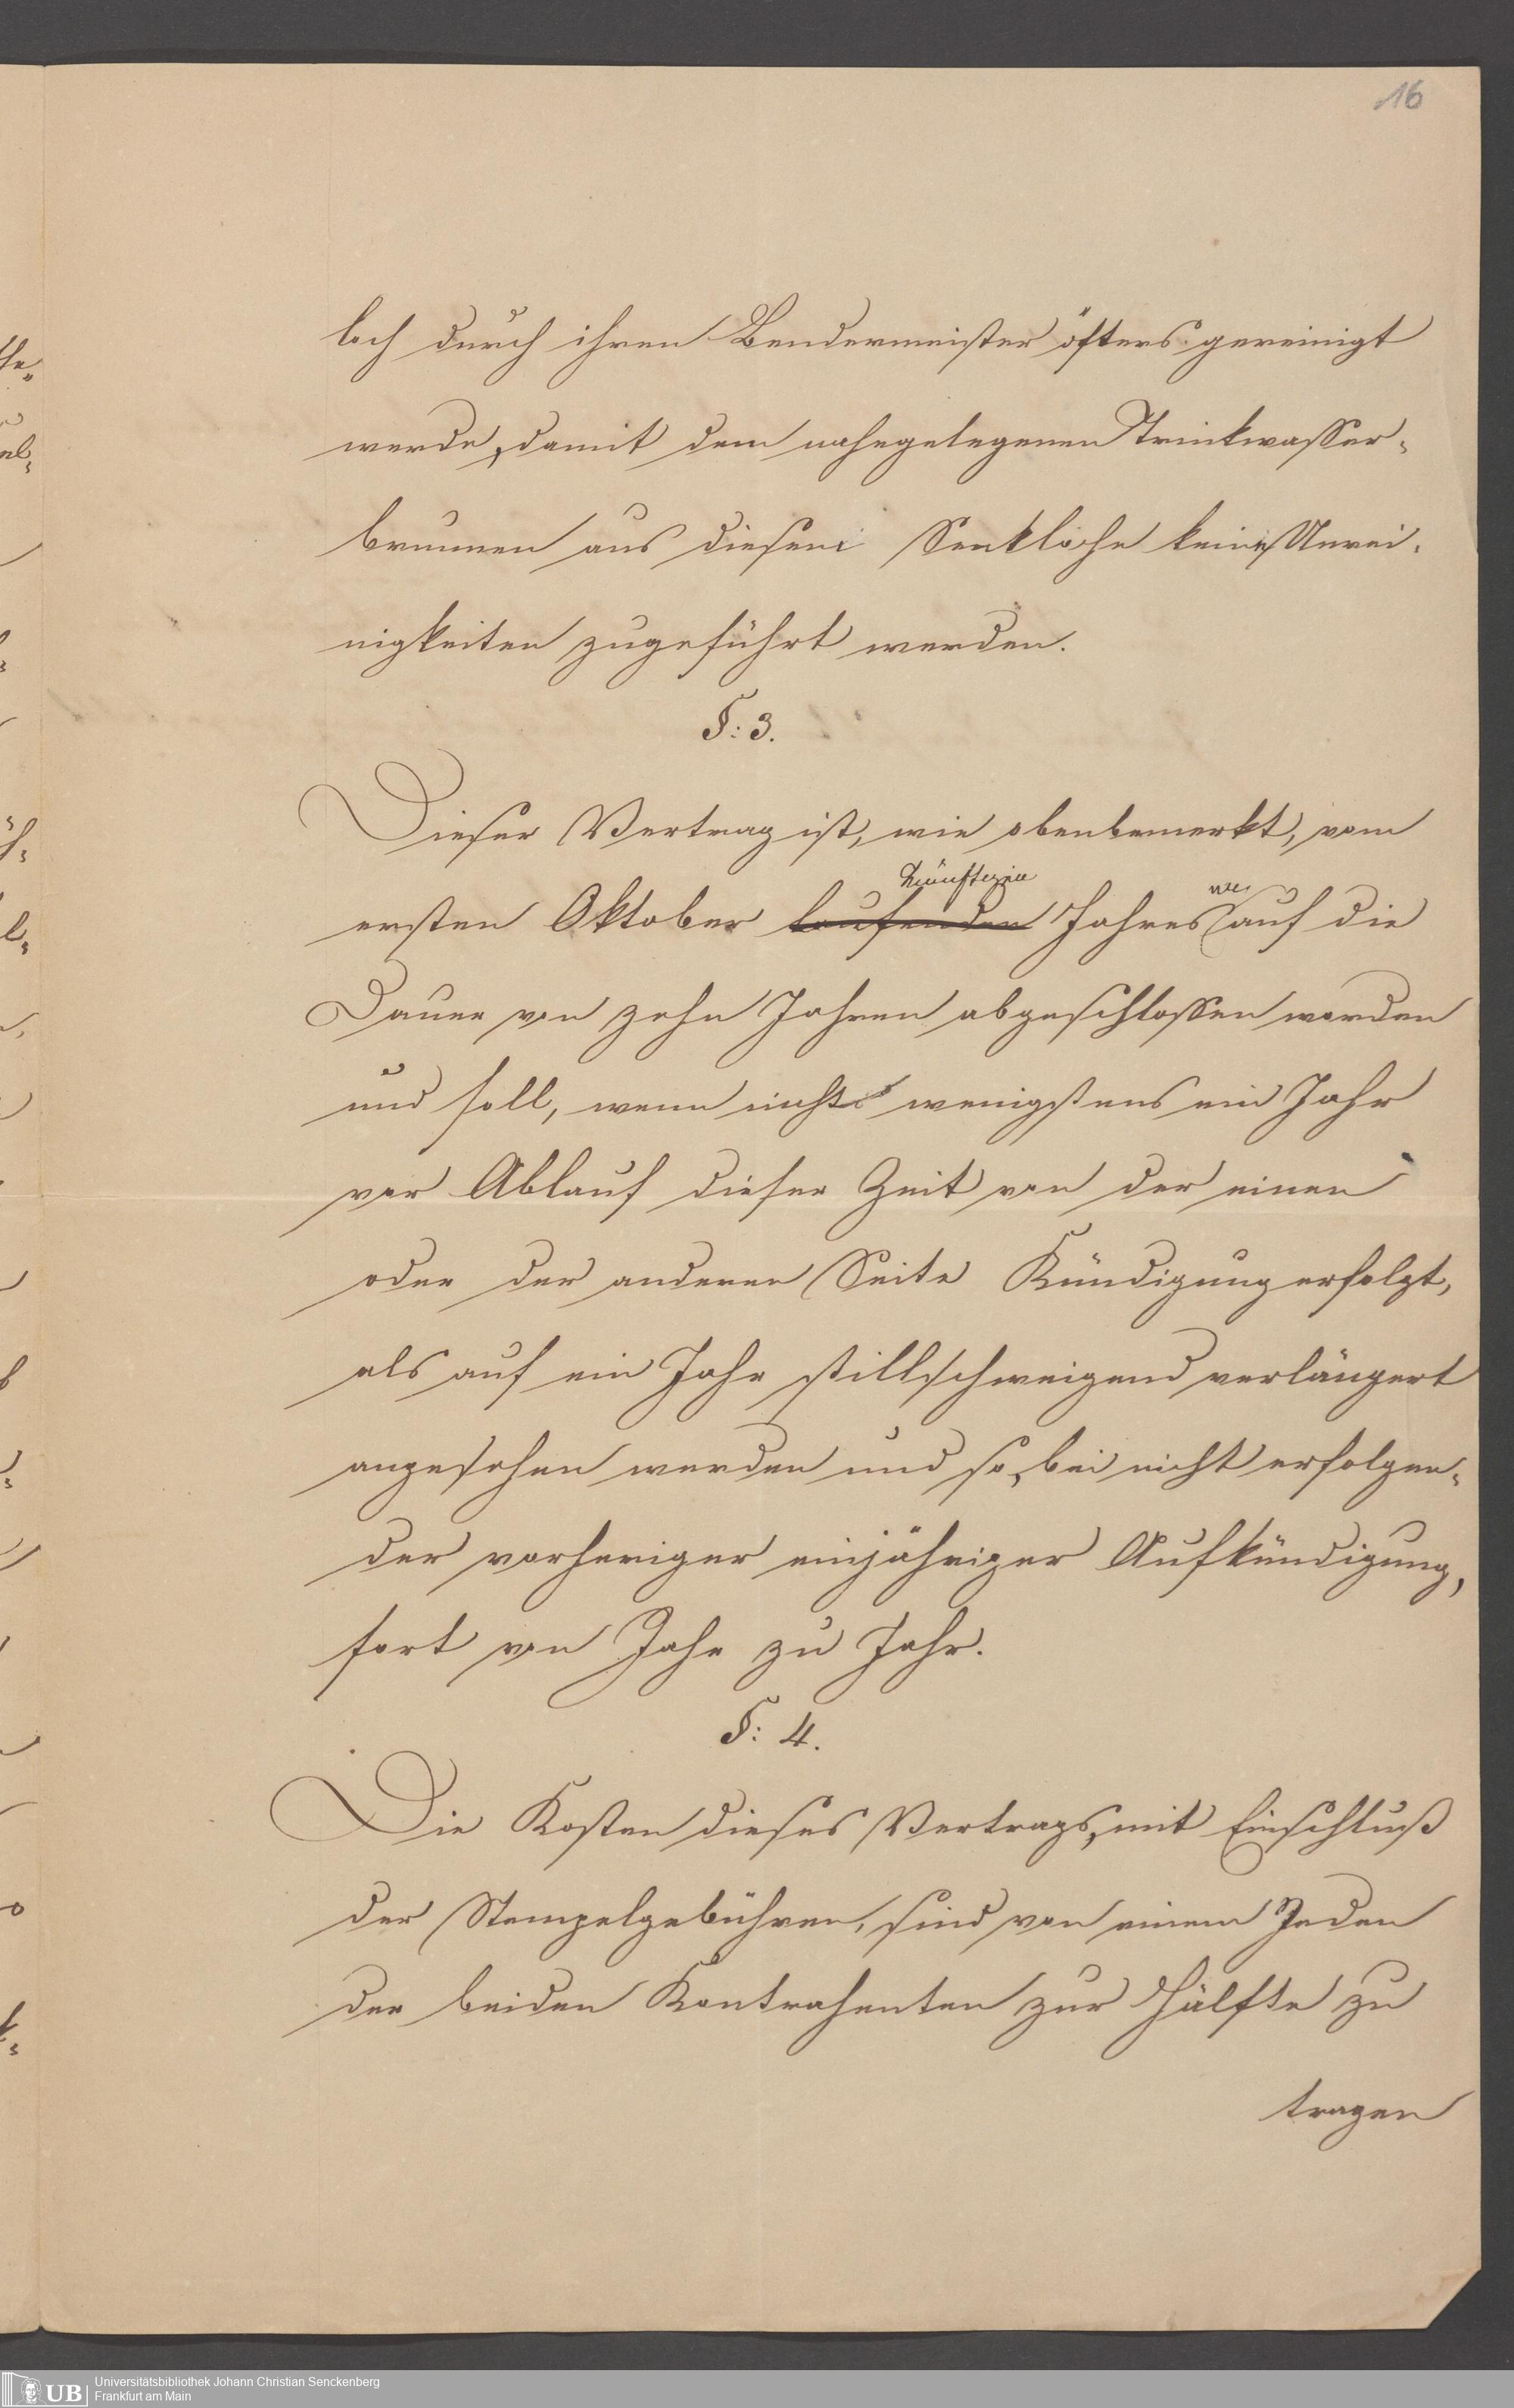 16
loch durch ihren Bendermeister öfters gereinigt
werde, damit dem nahegelegenen Trinkwasser-
brunnen aus diesem Senkloche keine Unrei-
nigkeiten zugeführt werden.
§: 3.
Dieser Vertrag ist, wie obenbemerkt, vom
künftigen
ersten Oktober laufenden Jahres auf die
Dauer von zehn Jahren abgeschlossen worden
und soll, wenn nicht wenigstens ein Jahr
vor Ablauf dieser Zeit von der einen
oder der anderen Seite Kündigung erfolgt,
als auf ein Jahr stillschweigend verlängert
angesehen werden und so, bei nicht erfolgen-
der vorheriger einjähriger Aufkündigung,
fort von Jahr zu Jahr.
§: 4.
Die Kosten dieses Vertrags, mit Einschluß
der Stempelgebühren, sind von einem Jeden
der beiden Kontrahenten zur Hälfte zu
tragen
UB Universitätsbibliothek Johann Christian Senckenberg
Frankfurt am Main